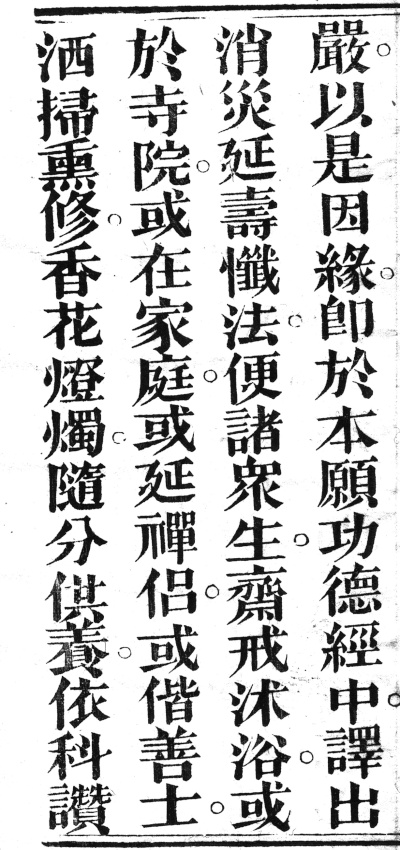 嚴。以是因緣。即於本願功德經中。譯出
消災延壽懺法。便諸衆生。齋戒沐浴。或
於寺院。或在家庭。或延禪侣。或偕善士。
洒掃熏修。香花燈燭。隨分供養。依科讚